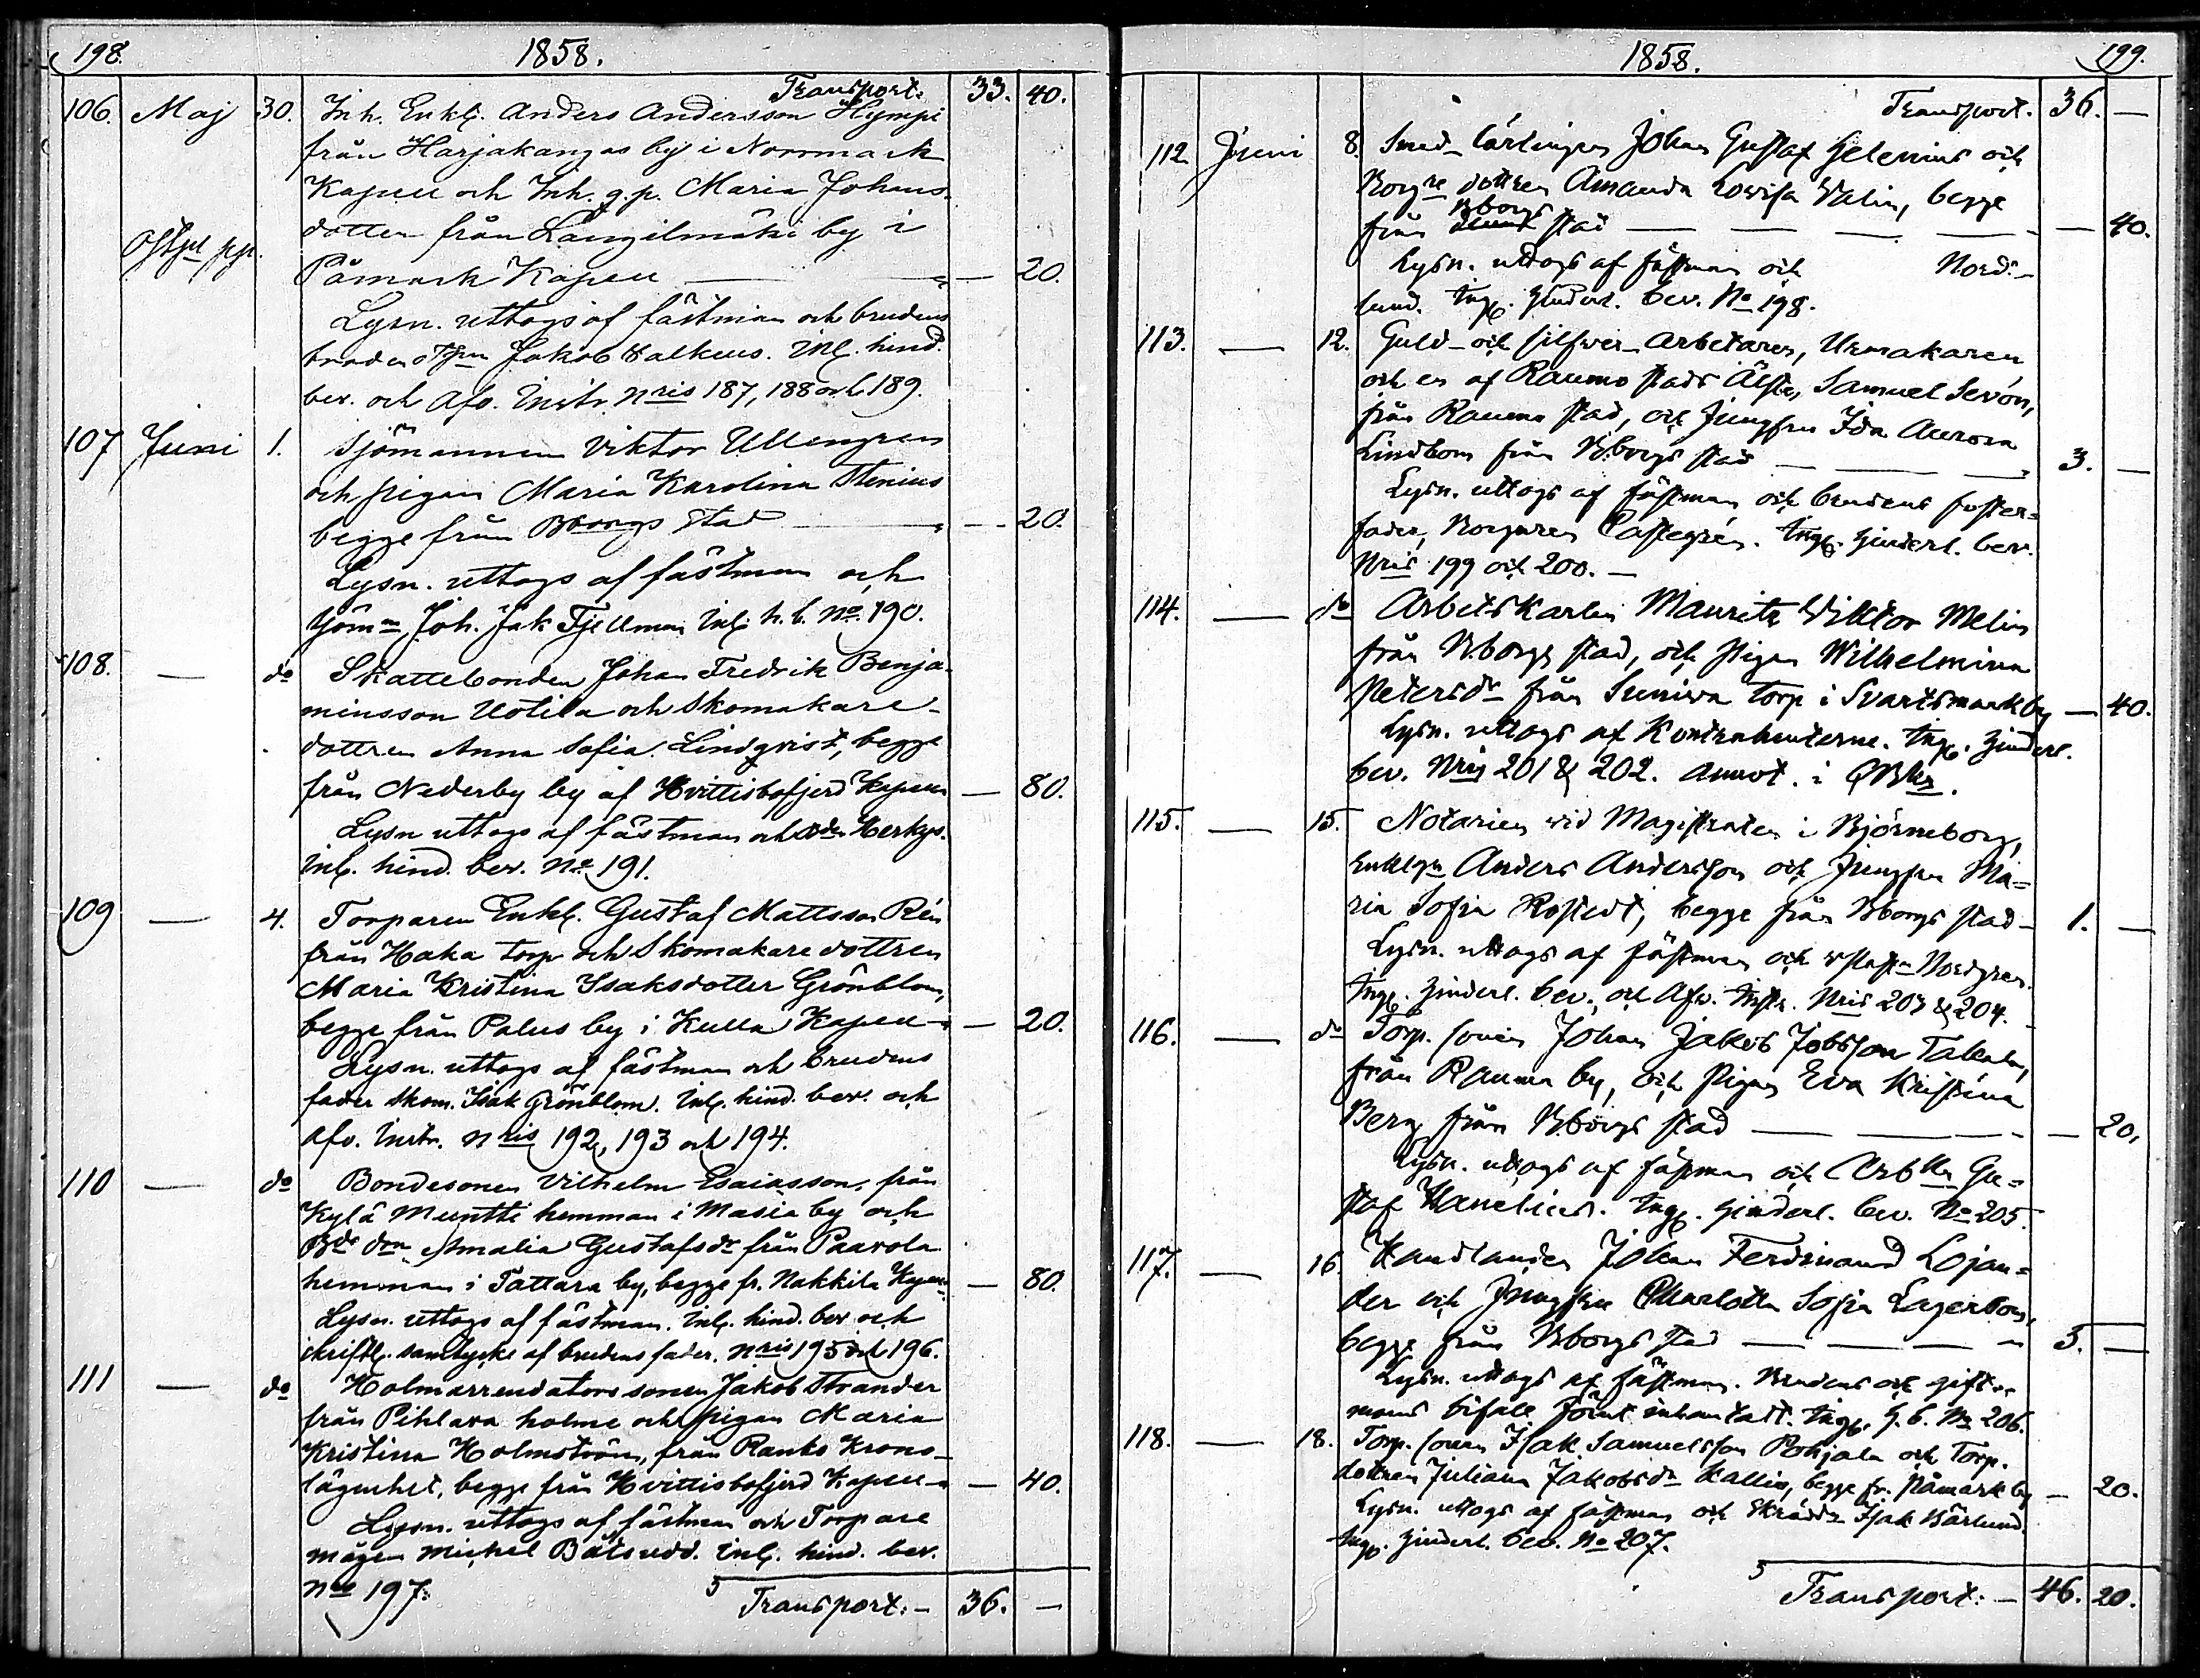 198.
1858.
Transport. 33. 40.
106. Maj 30. Inh. Enkl. Anders Andersson Hympi
från Harjakangas by i Norrmark
Kapell och Inh. g. p. Maria Johans-
dotter från Längilmäki by i
Påmark Kapell — — 20.
Lysn. uttogs af fästman och brudens
Jakob Valkeus. Inl. hind.
bev. och Afv. Instr. Nris 187, 188 och 189.
107 Juni 1. Sjömannen Viktor Ullengren
och pigan Maria Karolina Stenius
begge från Bborgs stad — — 20.
Lysn. uttogs af fästman och
Sjöm. Joh. Jak Fjellman Inl. h. b. No. 190.
108. — do Skattebonden Johan Fredrik Benja-
minsson Uotila och Skomakare-
dottren Anna Sofia Lindqvist, begge
från Nederby by af Hvittisbofjerd Kapell — 80.
Lysn uttogs af fästman och Herkys.
Inl. hind. bev. No 191.
109 — 4. Torparen Enkl. Gustaf Mattsson Rén
från Haka torp och Skomakare dottren
Maria Kristina Isaksdotter Grönblom,
begge från Palus by i Kulla Kapell — 20.
Lysn. uttogs af fästman och brudens
fader Skom. Isak Grönblom. Inl. hind. bev. och
Afv. Instr. Nris 192, 193 och 194.
110 — do Bondesonen Vilhelm Esaiasson, från
Kylä Muntti hemman i Masia by och
Bde dtrn Amalia Gustafsdr från Paavola
hemman i Tattara by, begge fr. Nakkila Kapell — 80.
Lysn. uttogs af fästman. Inl. hind. bev och
skriftl. samtycke af brudens fader. Nris 195 och 196.
111 — do Holmarrendators sonen Jakob Strander
från Pihlava holme och pigan Maria
Kristina Holmström, från Ranko Krono-
lägenhet, begge från Hvittisbofjerd Kapell — 40.
Lysn. uttogs af fästman och Torpare
mågen Michel Inl. hind. bev.
No 197.
Transport:— 36. —
1858.
199.
Transport. 36. —
112 Juni 8. Smed-lärlingen Johan Gustaf Helenius och
Borgre dottren Amanda Lovisa Valin, begge
från Bborgs stad — — 40.
Lysn. uttogs af fästman och Nord-
lund. Ingl. Hinderl. bev. No 198.
113. — 12. Guld- och silfwer-Arbetaren, Urmakaren
och en af Raumo stads Älste, Samuel Sevón,
från Raumo stad, och Jungfru Ida Aurora
Lindbom från Bborgs stad — 3. —
Lysn. uttogs af fästman och brudens foster-
fader, Borgaren Castegrén. Ingl. hinderl. bev.
Nris 199 och 200. —
114. — do Arbetskarlen Mauritz Wiktor Melin
från Bborgs stad, och pigan Wilhelmina
Petersdr från Suniwa torp i Svartsmark by — 40.
Lysn. uttogs af Kontrahenterne. Ingl. hinderl.
bev. Nris 201 & 202. Annot. i
115. — 15. Notarien wid Magistraten i Björneborg,
Enklgn Anders Andersson och Jungfru Ma-
ria Sofia Rostedt, begge från Bborgs stad — 1. —
Lysn. uttogs af fästman och Nordgren.
Ingl. hinderl. bev. och Afv. Instr. Nris 203 & 204.
116. — do Torp. sonen Johan Jakob Jobsson Takala,
från Rauma by, och Pigan Eva Kristina
Berg från Bborgs stad — — 20.
Lysn. uttogs af fästman och Arbkn Gu-
staf Hanelius. Ingl. hinderl. bev. No 205.
117. — 16. Handlanden Johan Ferdinand Lojan-
der och Jungfru Charlotta Sofia Lagerbom,
begge från Bborgs stad — 5. —
Lysn. uttogs af fästman. Brudens och gifto-
mans bifall förut inhemtadt. Ingl. h. b. No 206.
118. — 18. Torp. sonen Isak Samuelsson Pohjala och Torp.
dottren Juliana Jakobsdr Kallio, begge fr. Påmark by — 20.
Lysn. uttogs af fästman och Skrädd. Isak Bärlund.
Ingl. hinderl. bev. No 207.
Transport:— 46. 20.